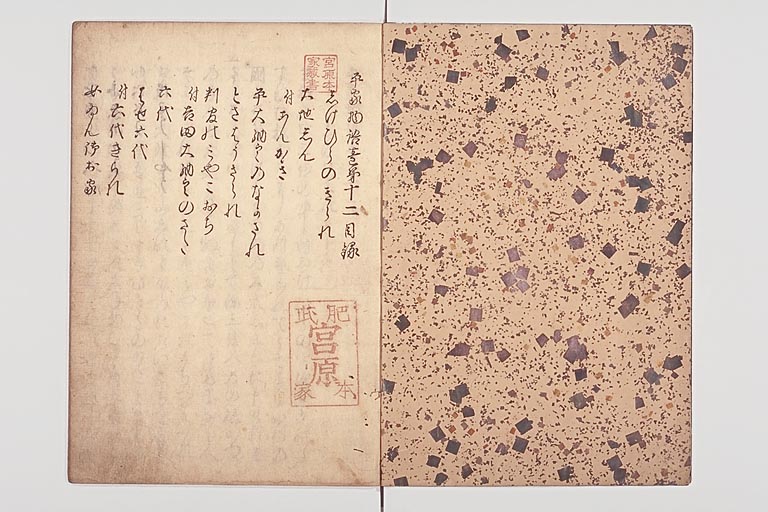 平家物語巻第十二目録
しけひらのきられ
大地しん
付あんかき
平大納言のなかされ
とさはうきられ
判官のみやこおち
付吉田大納言のさた
六代
はせ六代
付六代きられ
女ゐん御出家
宮原本
家蔵書
肥
氏
宮原
本
家